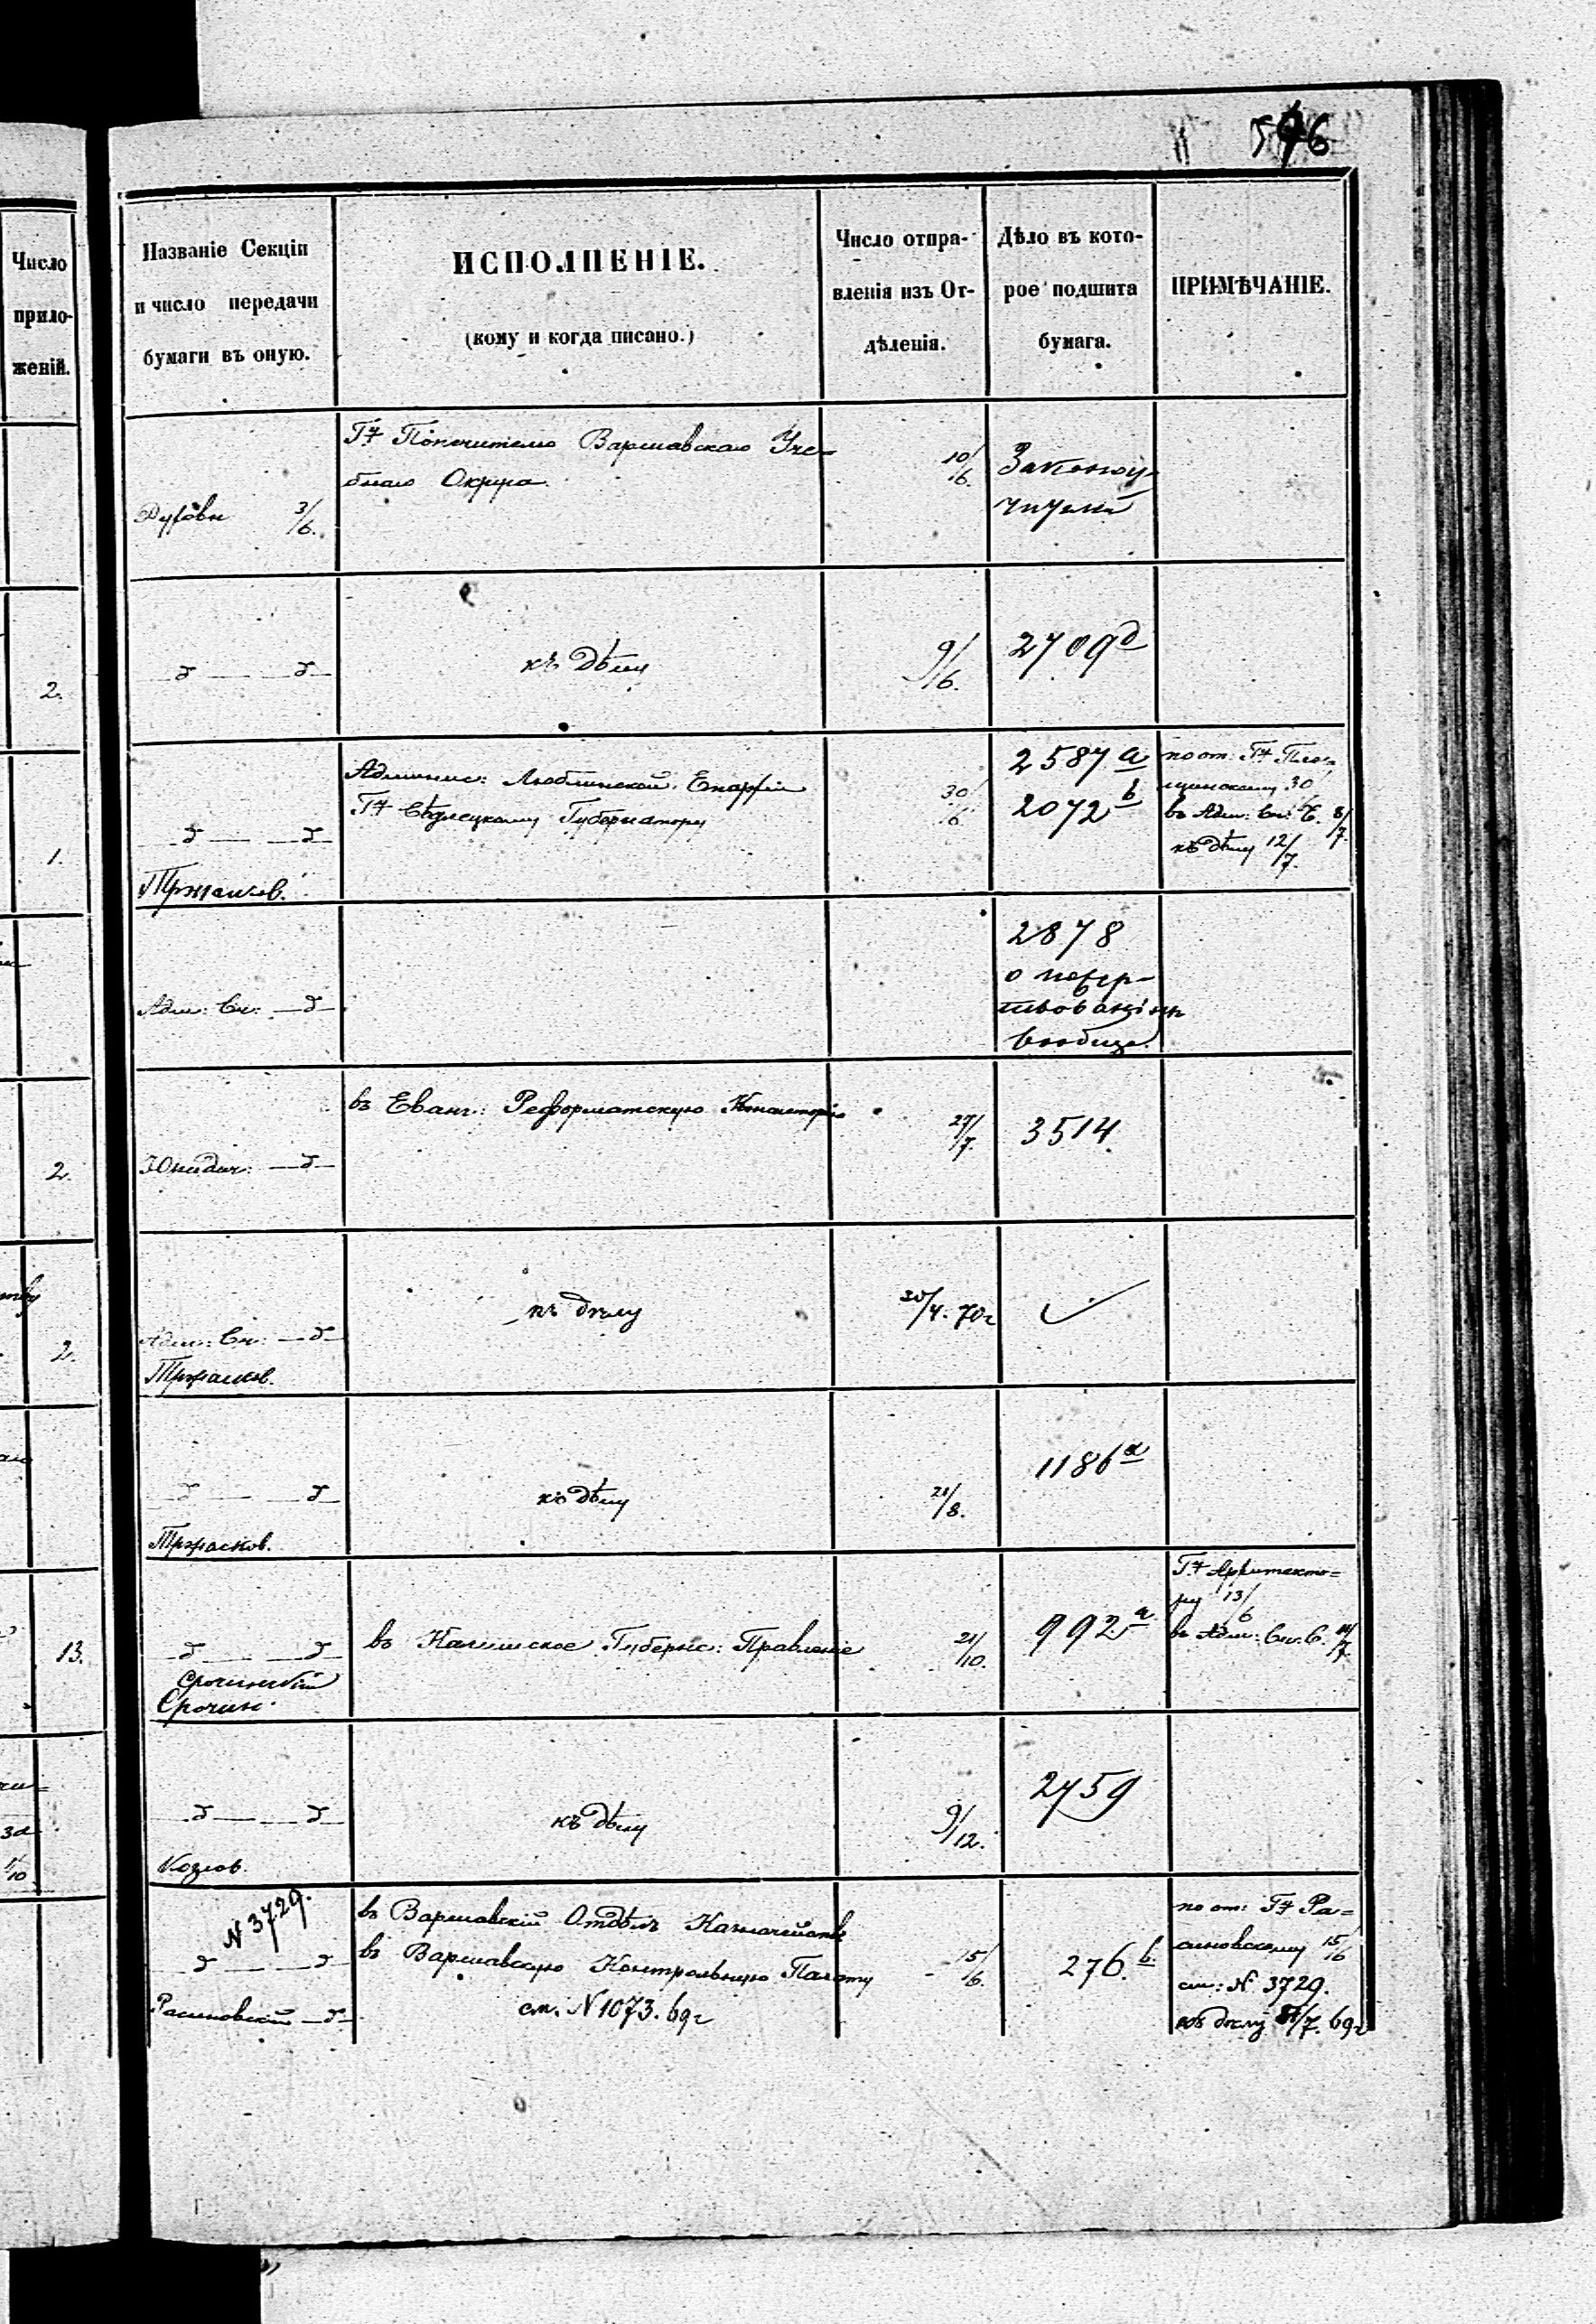 576
Число
прило-
женій.
Названіе Секціи
и число передачи
бумаги въ оную.
ИСПОЛНЕНІЕ.
(кому и когда писано.)
Число отпра-
вленія изъ От-
дѣленія.
Дѣло въ кото-
рое подшита
бумага.
ПРИМѢЧАНІЕ.
Духовн 3/6.
Гну Попечителю Варшавскаго Уче-
бнаго Округа.
10/6.
Законоу-
чители
2.
—д— —д—
къ дѣлу
9/6.
2709 д
1.
—д— —д—
Админис: Люблинской Епархіи
Гну Сѣдлецкому Губернатору
30/6.
2587 a
2072 b
по от: Гну
30/6
въ Адм: Ск: 8/7.
къ дѣлу 12/7.
Адм: Ск: —д—
2878
о пожер-
твованіяхъ
вообще.
2.
Юридич: —д—
въ Еванг: Реформатскую Консисторію
27/7.
3514
2.
Адм: Ск: —д—
къ дѣлу
/4. 70г
—д— —д—
къ дѣлу
21/8.
1186 a
13.
—д— —д—
Срочинскій
Срочин.
въ Калишское Губернс: Правленіе
21/10.
992 a
Гну Архитекто-
ру 13/6
въ Адм: Ск. С. /7.
—д— —д—
Козлов.
къ дѣлу
9/12.
2759
N 3729.
—д— —д—
Расиновскій —д—
въ Варшавскій Отдѣлъ Казначейства
въ Варшавскую Контрольную Палату
см. N 1073. 69г
15/6.
276. b.
по от: Гну Ра-
синовскому 15/6
см: N 3729.
къ дѣлу /7. 69г